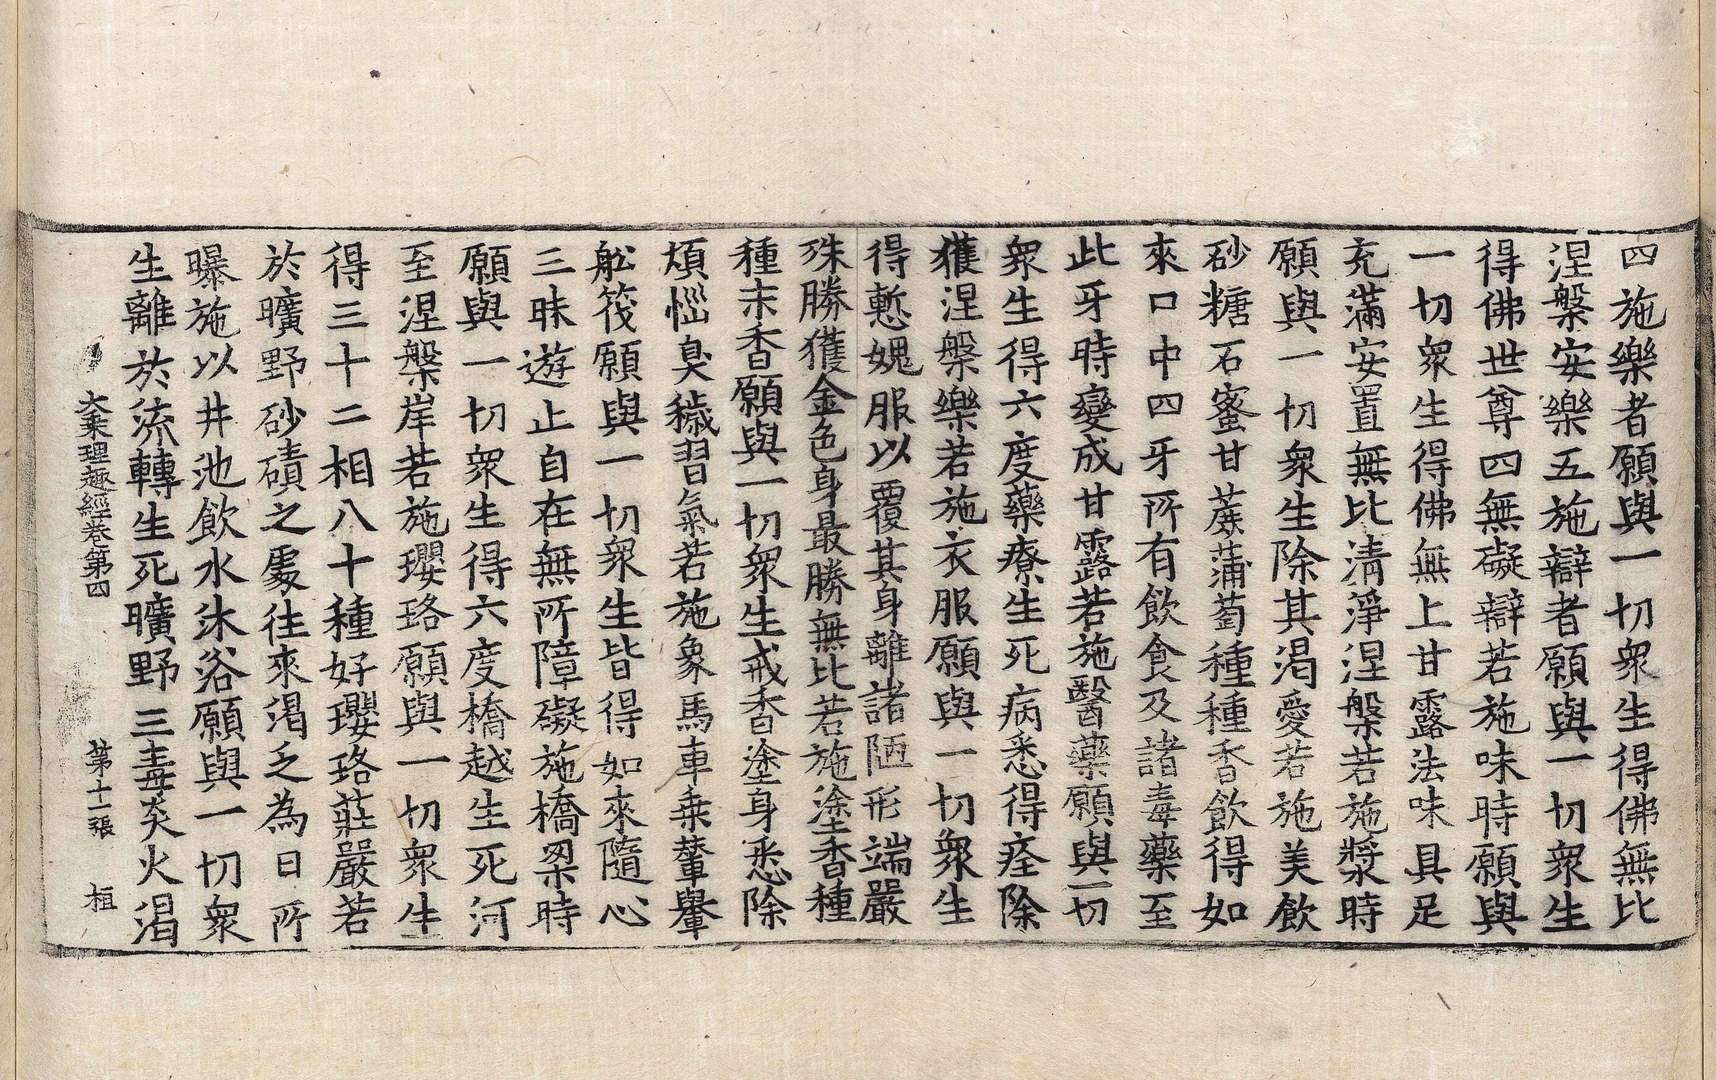 四施樂者願與一切衆生得佛無比
涅槃安樂五施辯者願與一切衆生
得佛世尊四無礙辯若施味時願與
一切衆生得佛無上甘露法味具足
充滿安置無比清淨涅槃若施漿時
願與一切衆生除其渴愛若施美飲
砂糖石蜜甘蔗蒲萄種種香飲得如
來口中四牙所有飲食及諸毒藥至
此牙時變成甘露若施醫藥願與一切
衆生得六度藥療生死病悉得痊除
獲涅槃樂若施衣服願與一切衆生
得慙媿服以覆其身離諸陋形端嚴
殊勝獲金色身最勝無比若施塗香種
種末香願與一切衆生戒香塗身悉除
煩惱臭穢習氣若施象馬車乗輦轝
舩筏願與一切衆生皆得如來隨心
三昧遊止自在無所障礙施橋梁時
願與一切衆生得六度橋越生死河
至涅槃岸若施瓔珞願與一切衆生
得三十二相八十種好瓔珞莊嚴若
於曠野砂磧之處往來渴乏為日所
曝施以井池飲水沐浴願與一切衆
生離於流轉生死曠野三毒炎火渴
大乗理趣經卷第四 第十一張 桓